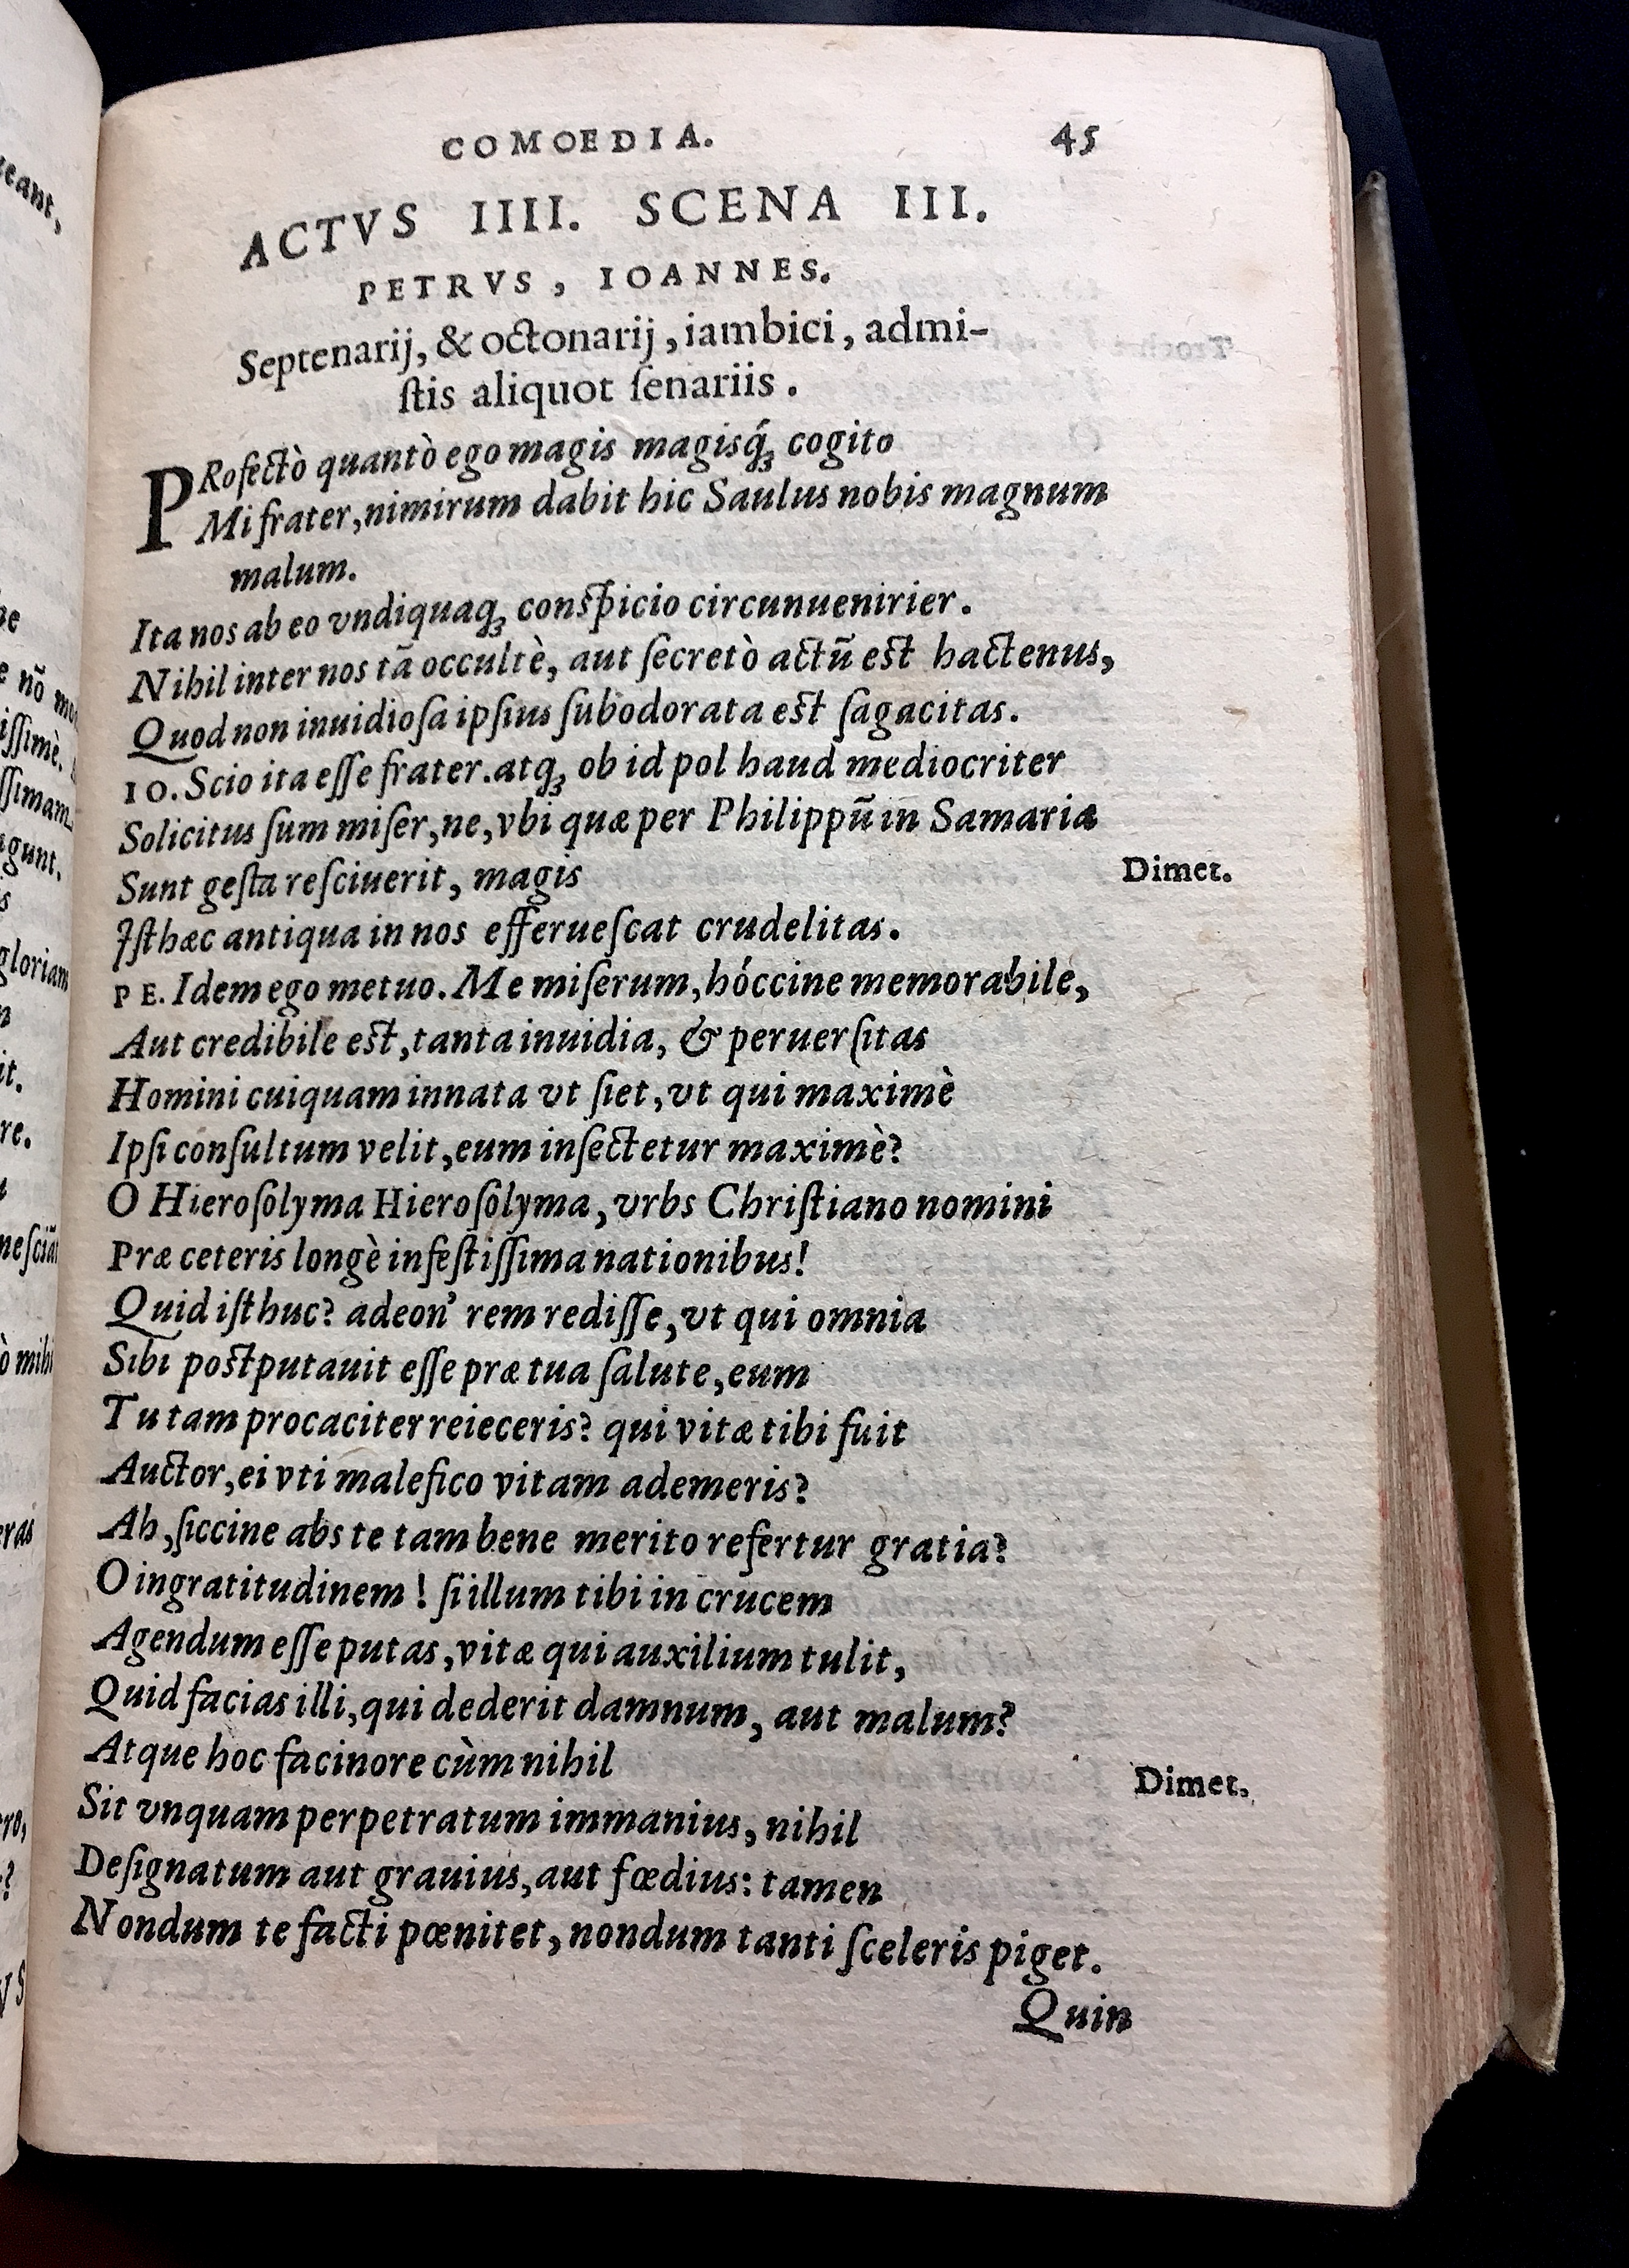 COMOEDIA. 45
ACTVS IIII. SCENA III.
PETRVS, IOANNES.
Septenarij, & octonarij, iambici, admi-
ſtis aliquot ſenariis.
PRofectò quantò ego magis magisq́ꝫ cogito
Mi frater, nimirum dabit hic Saulus nobis magnum
malum.
Ita nos ab eo vndiquaqꝫ conſpicio circunuenirier.
Nihil inter nos tã occultè, aut ſecretò actũ eſt hactenus,
Quod non inuidioſa ipſius ſubodorata eſt ſagacitas.
IO. Scio ita eſſe frater. atqꝫ ob id pol haud mediocriter
Solicitus ſum miſer, ne, vbi quæ per Philippũ in Samaria
Sunt geſta reſciuerit, magis Dimet.
Iſthæc antiqua in nos efferueſcat crudelitas.
PE. Idem ego metuo. Me miſerum, hóccine memorabile,
Aut credibile eſt, tanta inuidia, & peruerſitas
Homini cuiquam innata vt ſiet, vt qui maximè
Ipſi conſultum velit, eum inſectetur maximè?
O Hieroſolyma Hieroſolyma, vrbs Chriſtiano nomini
Præ ceteris longè infeſtiſſima nationibus!
Quid iſthuc? adeon' rem rediſſe, vt qui omnia
Sibi poſtputauit eſſe præ tua ſalute, eum
Tu tam procaciter reieceris? qui vitæ tibi fuit
Auctor, ei vti malefico vitam ademeris?
Ah, ſiccine abs te tam bene merito refertur gratia?
O ingratitudinem! ſi illum tibi in crucem
Agendum eſſe putas, vitæ qui auxilium tulit,
Quid facias illi, qui dederit damnum, aut malum?
Atque hoc facinore cùm nihil Dimet.
Sit vnquam perpetratum immanius, nihil
Deſignatum aut grauius, aut fœdius: tamen
Nondum te facti pœnitet, nondum tanti ſceleris piget.
Quin